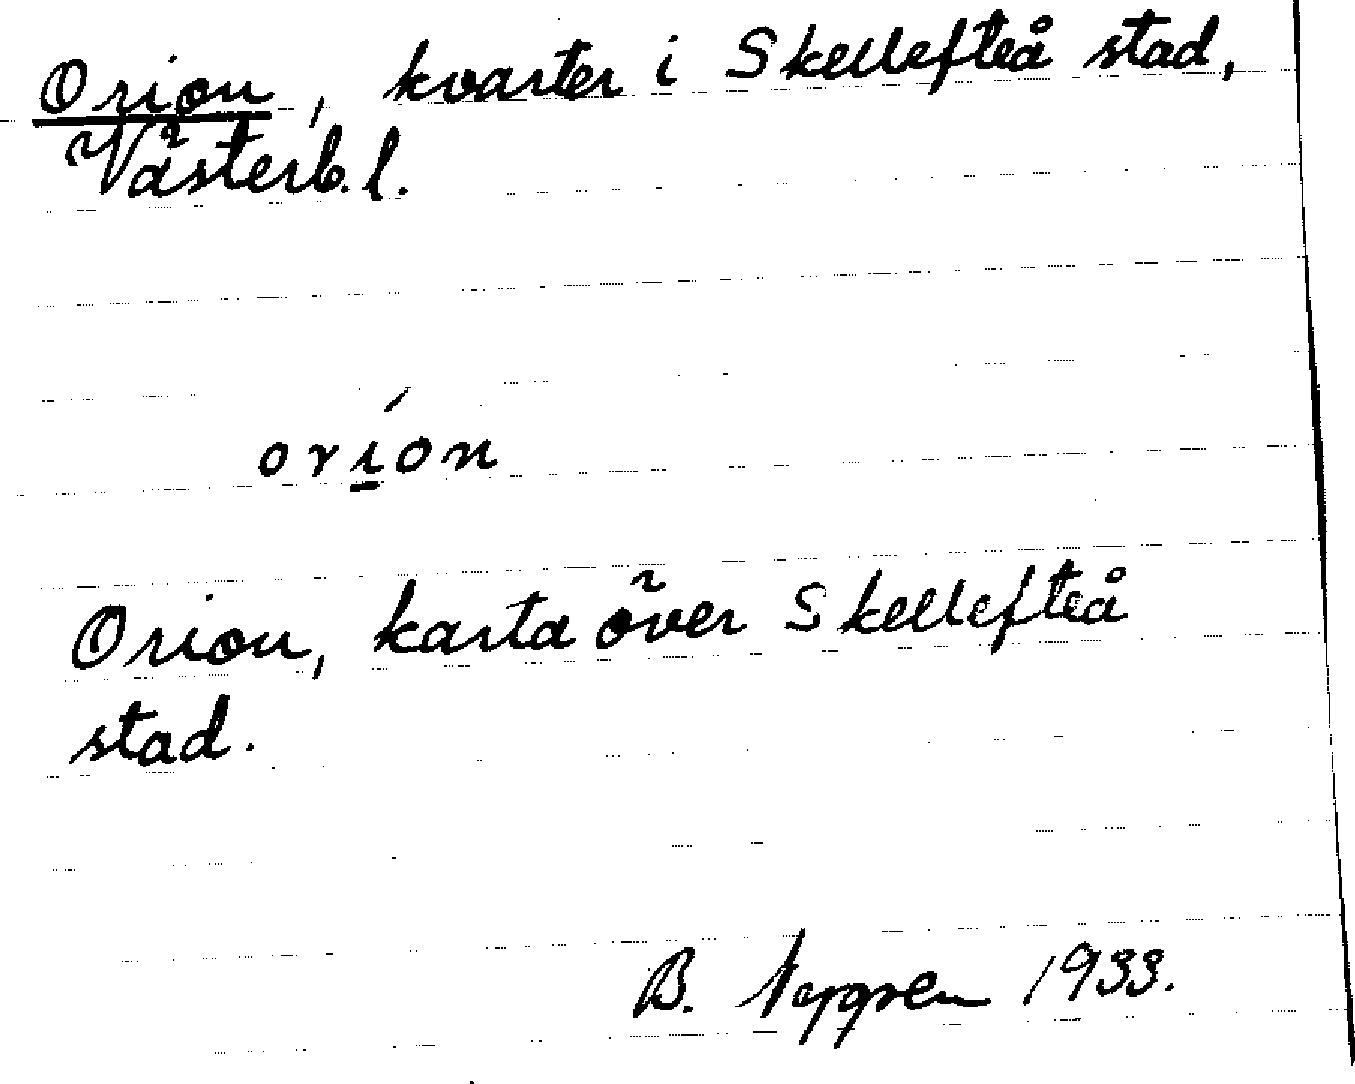 Orion, kvarter i Skellefteå stad,
Västerb. l.
orío̲n
Orion, karta över Skellefteå
stad.
B. 1933.